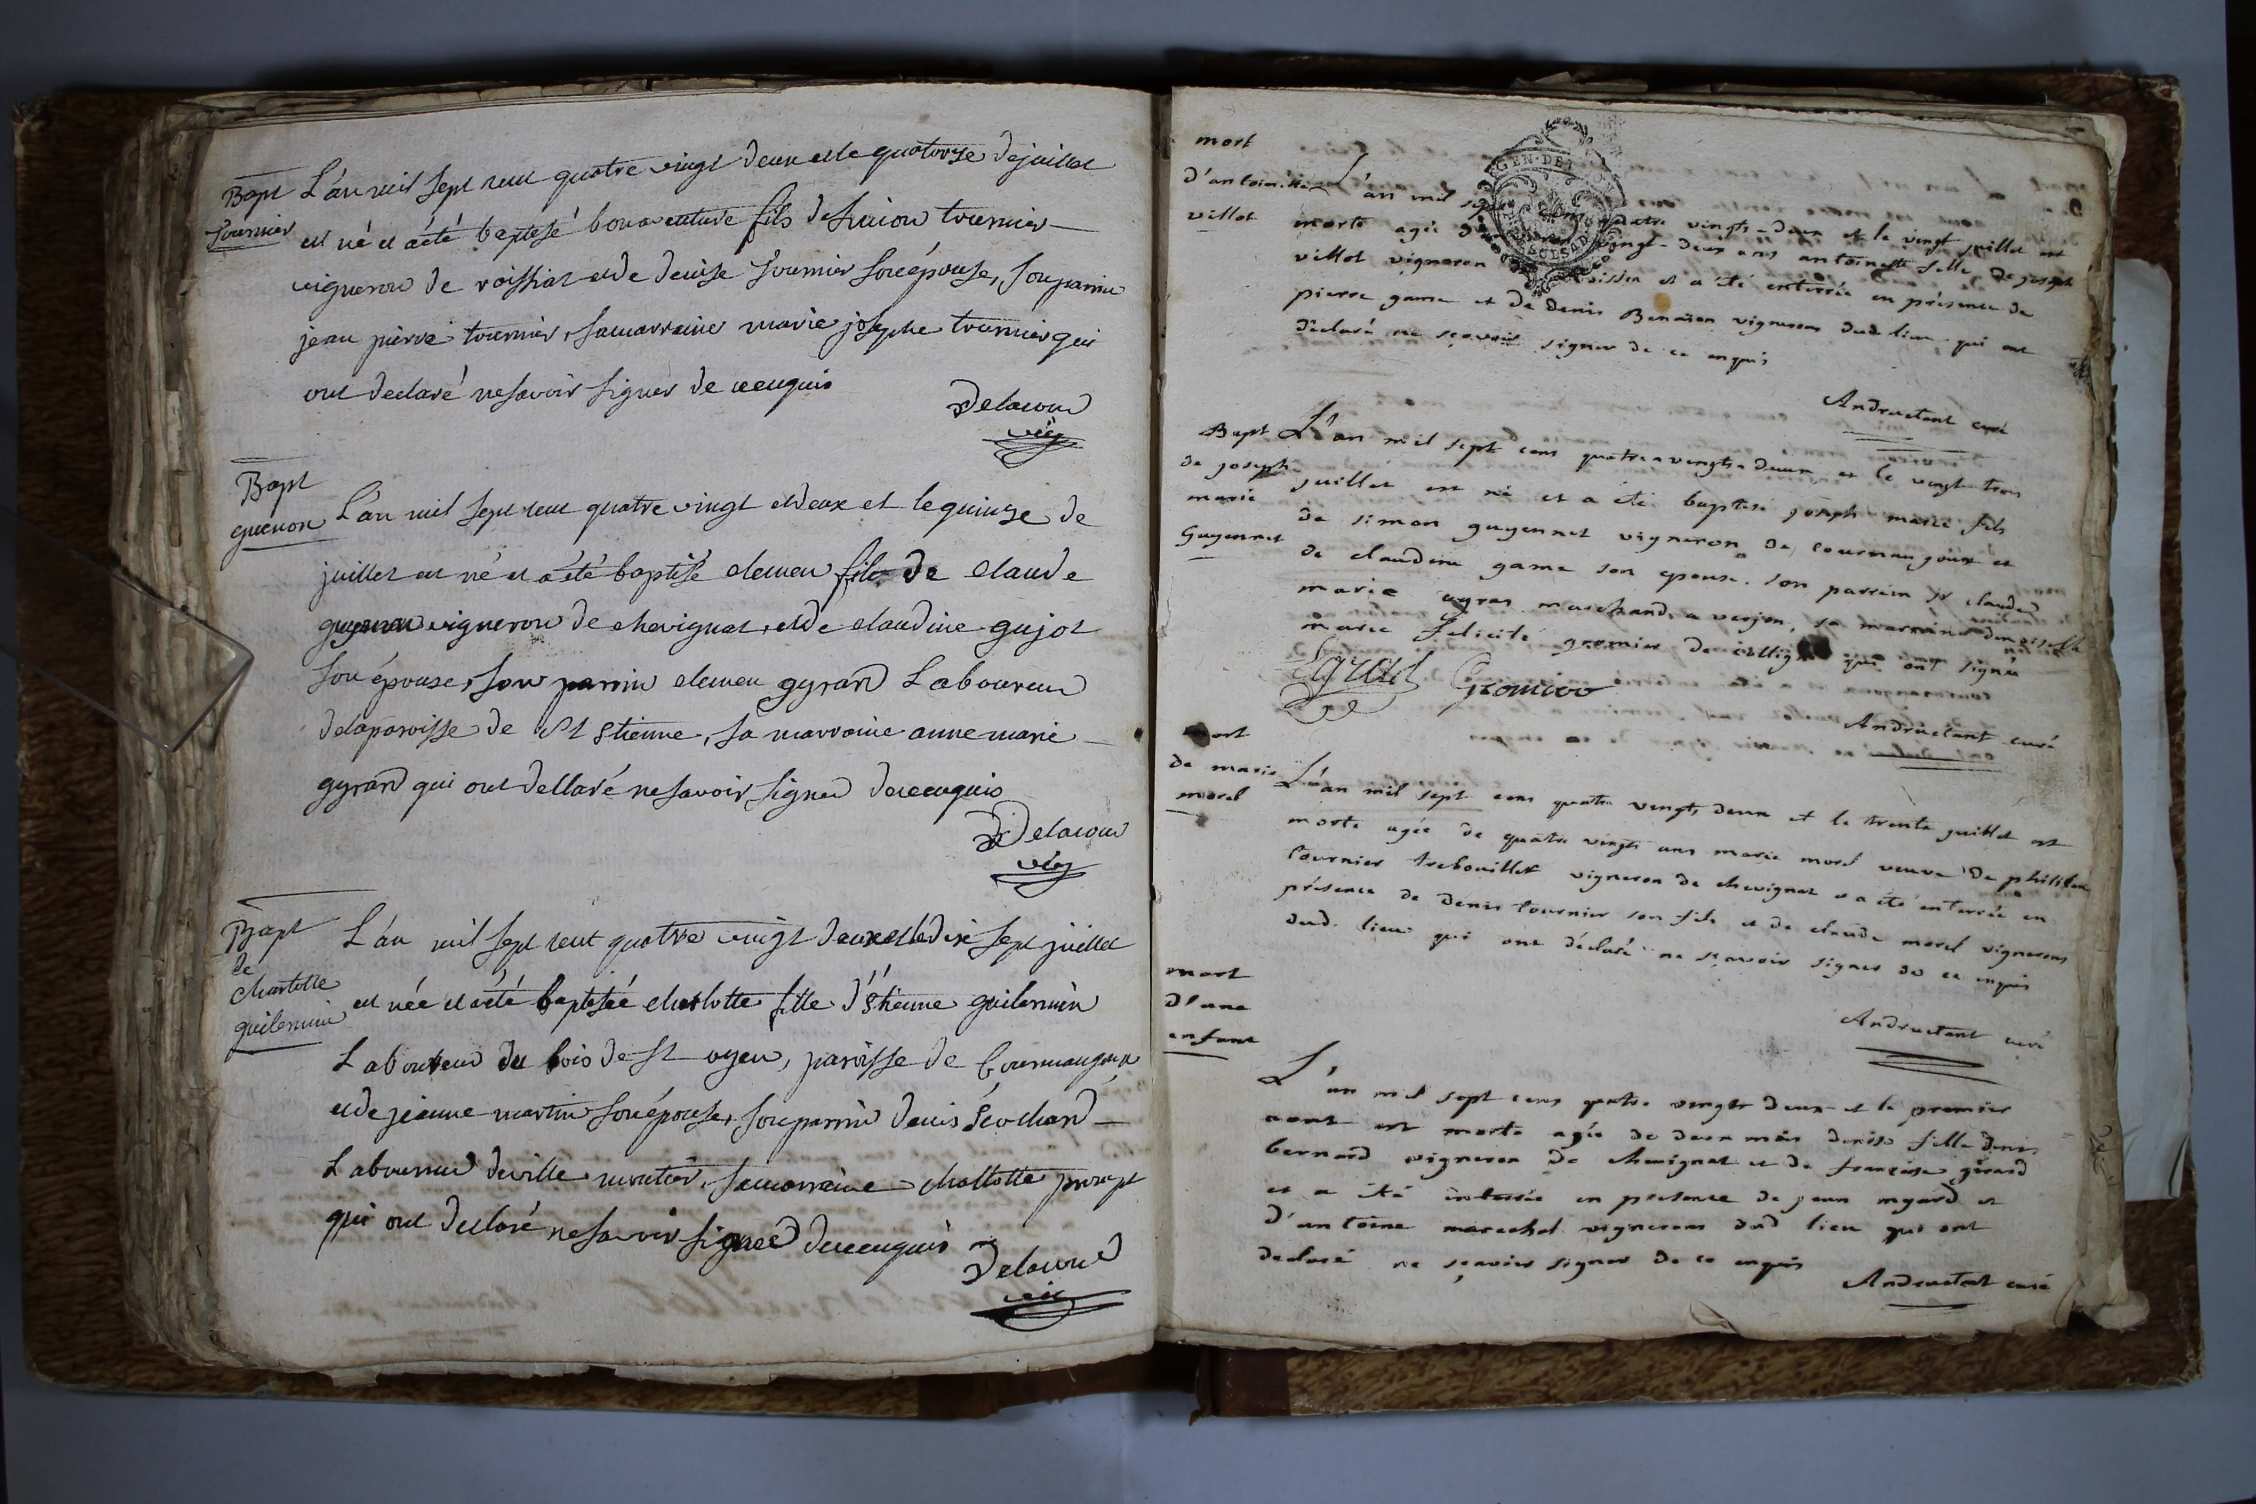 Bapt
tournier
L'an mil sept cent quatre vingt deux et le quatorze de juillet
est né et a été baptisé bonaventure fils de tournier
vigneron de roissiat et de denise fournier son épouse, son parrin
jean pierre tournier, sa marraine marie josephe tournier qui
ont declaré ne savoir signer de ce enquis
Delacour
vic
Bapt
guenon
L'an mil sept cent quatre vingt et deux et le quinze de
juillet est né et a été baptisé clemen fils de claude
vigneron de chevignat, et de claudine gujot
son épouse, son parrin clemen gyran Laboureur
de la paroisse de St Etienne, sa marraine anne marie
gyran qui ont dellaré ne savoir signer de ce enquis
Delacour
vic
Bapt
de
charlotte
guilermin
L'an mil sept cent quatre vingt deux et le dix sept juillet
est née et a été baptisée charlotte fille d'étienne guilermin
Laboureur du bois de St oyen, paroisse de Courmangoux
et de jeanne martin son épouse, son parrin denis
Laboureur de ville moutier, sa marraine charlotte
qui ont declaré ne savoir signer de ce enquis
Delacour
vic
mort
d'antoinette
villot
GEN. DE
L'an mil sept cens quatre vingts-deux et le vingt juillet est
morte agée d' vingt-deux ans antoinette fille de joseph
villot vigneron et a été enterrée en présence de
pierre game et de denis vignerons dud. lieu qui ont
declaré ne sçavoir signer de ce enquis
Andruetant curé
Bapt
de joseph
marie
Guyennet
L'an mil sept cens quatre-vingts-deux et le vingt-trois
juillet est né et a été baptisé joseph marie fils
de simon guyennet vigneron de courmangoux et
de claudine game son epouse. son parrein sr claude
marie marchand a verjon, sa marraine demoiselle
marie felicité gromier de qui ont signé
Gromier
Andruetant curé
mort
de marie
morel
L'an mil sept cens quatre vingts deux et le trente juillet est
morte agée de quatre vingts ans marie morel veuve de philibert
tournier trebouillet vigneron de chevignat et a été enterrée en
présence de denis tournier son fils et de claude morel vignerons
dud. lieu qui ont déclaré ne sçavoir signer de ce enquis
Andruetant curé
mort
d'une
enfant
L'an mil sept cens quatre vingts deux et le premier
aout est morte agée de deux mois denise fille denis
bernard vigneron de chevignat et de françoise girard
et a été enterrée en presence de jean mgard et
d'antoine marechal vignerons dud lieu qui ont
declaré ne sçavoir signer de ce enquis
Andruetant curé